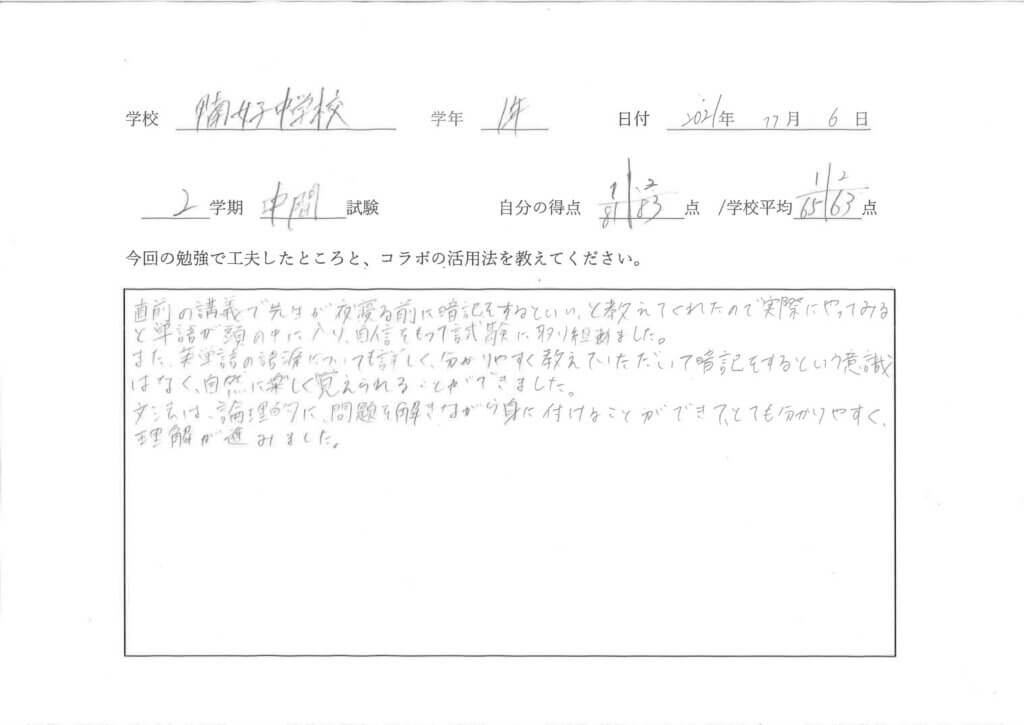 学校 甲南女子中学校 学年 1年 日付 2021年 11月 6日
2学期 中間 試験 自分の得点 1 81 | 2 83 点 /学校平均 1 65 | 2 63 点
今回の勉強で工夫したところと、コラボの活用法を教えてください。
直前の講義で先生が夜寝る前に暗記をするといい、と教えてくれたので実際にやってみる
と単語が頭の中に入り、自信をもって試験に取り組めました。
また、英単語の語源についても詳しく、分かりやすく教えていただいて暗記をするという意識
はなく、自然に楽しく覚えられることができました。
文法は、論理的に、問題を解きながら身に付けることができて、とても分かりやすく、
理解が進みました。